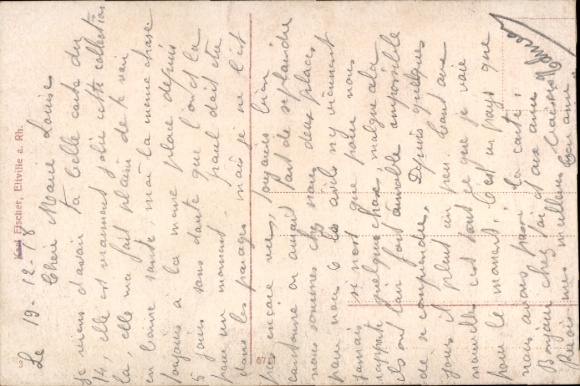 Karl Fischer, Eltville a. Rh.
Le 19-12-18
Chere Marie Louise
Je viens d'avoir ta belle carte du
14, elle est vraiment jolie cette collection
la, elle m'a fait plaisir de te voir
en bonne santé, moi la même chose
toujours à la même place depuis
5 jours sans doute que l'on est la
pour un moment. Paul doit être
dans les parages mais je ne l'ait
pas encore vue, toujours bien
cantonné on aurait tort de se plaindre
nous sommes chez nous deux places
pour nous 6 les civils n'y viennent
jamais si n'est que pour nous
rapporté quelque chose, malgré cela
ils ont l'air fort aimable impossible
de se comprendre. Depuis quelques
jours il pleut un peu. Tant que
nouvelles c'est tout ce que je vois
pour le moment. C'est un pays que
nous avons pas la carte.
Bonjour chez toi et aux amis
Reçois mes meilleurs
ton ami